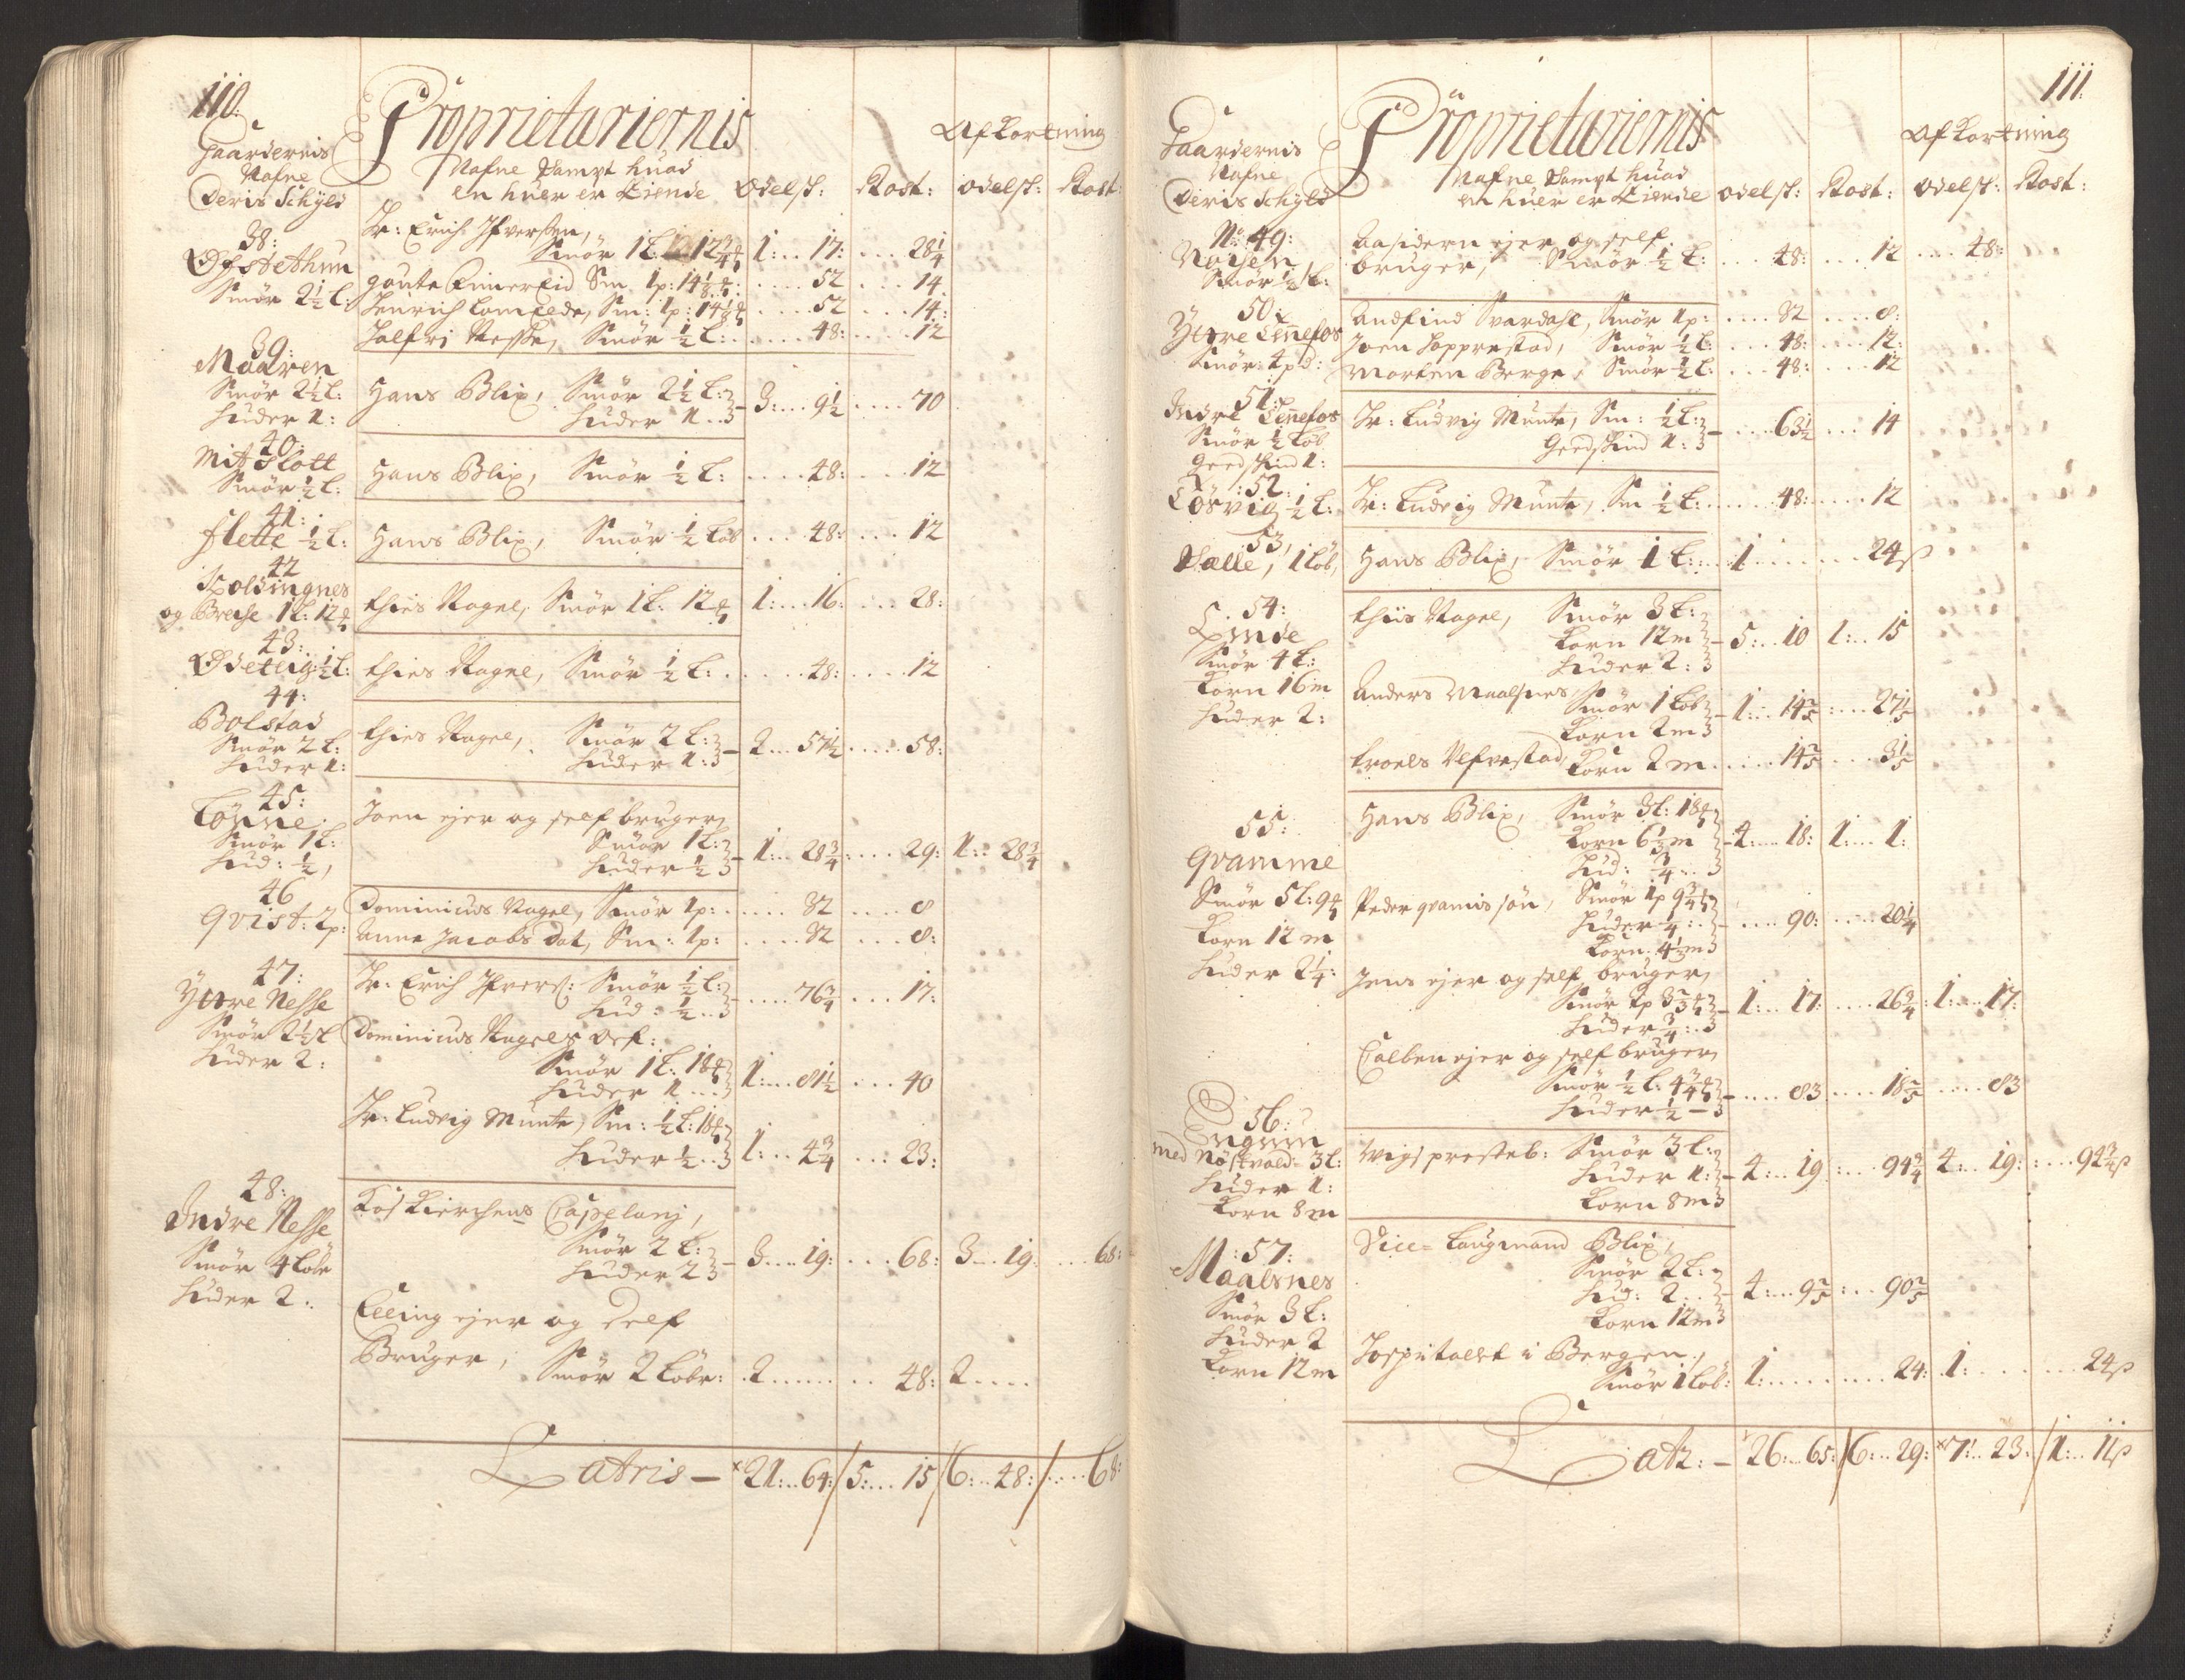 110.
Gaardernis
Nafne
Deris Schyld
Proprietariernis
Nafne Sampt huad
en huer er Eiende
Odelsk: Rost:
Afkortning
Odelsk: Rost:
38:
Øfstethun
Smør 2½ L:
Hr: Erich Ifversen,
Smör 1 L: 12¾ 1: .. 17: ... 28¼
goute Eimereid Sm 1p: 14⅛ .... 52 ... 14
Henrich Sm: 1p: 14⅛ .... 52 ... 14:
Smör ½ L: .... 48: ... 12
39:
Maaren
Smör 2½ L:
Huder 1:
Hans Blix, Smör 2½ L:
Huder 1 .. 3: ... 9½ .... 70
40:
Mit Slott
Smör ½ L:
Hans Blix, Smör ½ L: .... 48: ... 12
41:
flette ½ L:
Hans Blix, Smör ½ Löb .... 48: ... 12
42
Spolsingnes
og Breche 1 L: 12
thies Nagel, Smör 1 L: 12 1: ... 16: ... 28:
43:
½ L:
thies Nagel, Smör ½ L: .... 48: .... 12
44:
Bolstad
Smör 2 L:
Huder 1:
thies Nagel, Smör 2 L:
Huder 1: 2 ... 57½ .... 58:
45:
Lönne
Smör 1 L:
Hud: ½,
Joen ejer og self bruger,
Smör 1 L:
Huder ½ 1: .. 28¾ .... 29: 1: .. 28¾
46
Qvist: 2p:
Dominicus Nagel, Smör 1p: .... 32 .... 8
Anna Jacobs Dat, Sm: 1p: .... 32 ... 8:
47:
Yttre Nesse
Smör 2½ L
Huder 2:
Hr: Erich Ifvers: Smör ½ L:
Hud: ½ .. .... 76¾ ... 17:
Dominicus Nagels Arf:
Smör 1 L: 18
Huder 1 ... 1: ... 81½ ... 40
Hr: Ludvig Munte, Sm: ½ L: 18
Huder ½ .. 1: .. 4¾ ... 23:
48:
Indre Nesse
Smör 4 Löbe
Huder 2:
Kierchens Capelanj,
Smör 2 L:
Huder 2 3 .... 19: ... 68: 3 ... 19: ... 68:
Elling ejer og Self
Bruger, Smör 2 Löbe: 2 ...... 48: 2 ....
Lateris — 21: .. 64: / 5: ... 15 / 6: .. 48: / .... 68:
111.
Gaardernis
Nafne
Deris Schyld
Proprietariernis
Nafne Sampt huad
en huer er Eiende
Odelsk: Rost:
Afkortning
Odelsk: Rost:
No 49:
Smör ½ L:
ejer og self
bruger, Smör ½ L: ... 48: ... 12 .... 48:
50:
Yttre Tennefos
Smör: 4 pd:
Andfind Svardahl, Smör 1p: .... 32 .... 8:
Joen Hopprestad, Smör ½ L: ... 48: .... 12:
Morten Berge, Smör ½ L: ... 48: .... 12
51:
Indre Tennefos
Smör ½ Löb
Geedskind 1:
Hr: Ludvig Munte, Sm: ½ L:
Geedskind 1: .... 63½ ... 14
52:
Løsvig ½ L:
Hr: Ludvig Munte, Sm ½ L: ..... 48: .... 12
53,
Sælle, 1 Löb,
Hans Blix, Smör 1 L: .... 1 ...... 24 β
54:
Ende
Smör 4 L:
Korn 16 m
Huder 2:
thiis Nagel, Smör 3 L:
Korn 12 m
Huder 2: 5: .. 10 1: .. 15
Anders Maalsnes, Smör 1 Löb
Korn 2 m 1: .. 14⅖ .... 27⅕
Korn 2 m .... 14⅖ ... 3⅕
55:
Qvamme
Smör 5 L: 9
Korn 12 m
Huder 2¼:
Hans Blix, Smör 3 L: 18
Korn 6½ m
Hud: ¾ ... 4: ... 18: 1: ... 1:
Peder qvamis sön, Smör 1p 9¾
Huder ¼:
Korn. 4½ m .... 90: .... 20¼
Jens ejer og self bruger,
Smör 2p 3⅔
Huder ¾: 1: .. 17: .... 26¾: 1: ... 17:
ejer og self bruger,
Smör ½ L: 4¾
Huder ½ .... 83 .... 18⅖ .... 83
56:
Engum
med Nöstvold = 3 L:
Huder 1:
Korn 8 m
Wigs presteb: Smör 3 L:
Huder 1:
Korn 8 m 4: .. 19 ... 94¾ 4: .. 19: .... 94¾ β
57:
Maalsnes
Smör 3 L:
Huder 2
Korn 12 m
Vice= Laugmand Blix,
Smör 2 L:
Hud: 2 ..
Korn 12 m 4: ... 9⅖ ... 90⅖
Hospitalet i Bergen,
Smör 1 Löb: 1: ........ 24: 1: ...... 24 β
Lat: — 26: .. 65: / 6: .. 29: 7: .. 23: / 1: .. 11 β